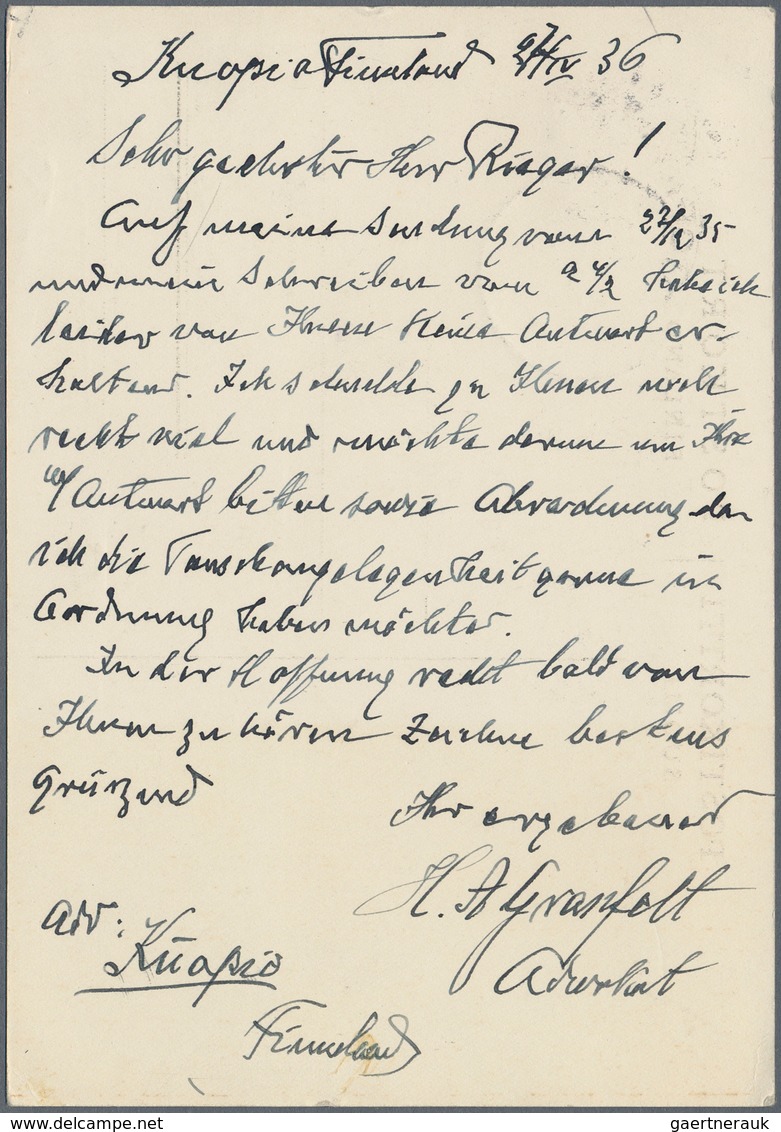 Kuopio Finnland 27/IV 36
Sehr geehrter Herr Rieger!
Auf meine Sendung vom 27/12 35
und mein Schreiben vom 24/2 habe ich
leider von Ihnen keine Antwort er-
halten. Ich schulde ja Ihnen noch
recht viel und möchte darum um Ihre
Antwort bitten sowie Abrechnung da
ich die Tauschangelegenheit gerne in
Ordnung haben möchte.
In der Hoffnung recht bald von
Ihnen zu hören zeichne bestens
Grüszend
Ihr ergebener
H. A Granfelt
Advokat
Adr:
Kuopio
Finnland
gaertnerauk